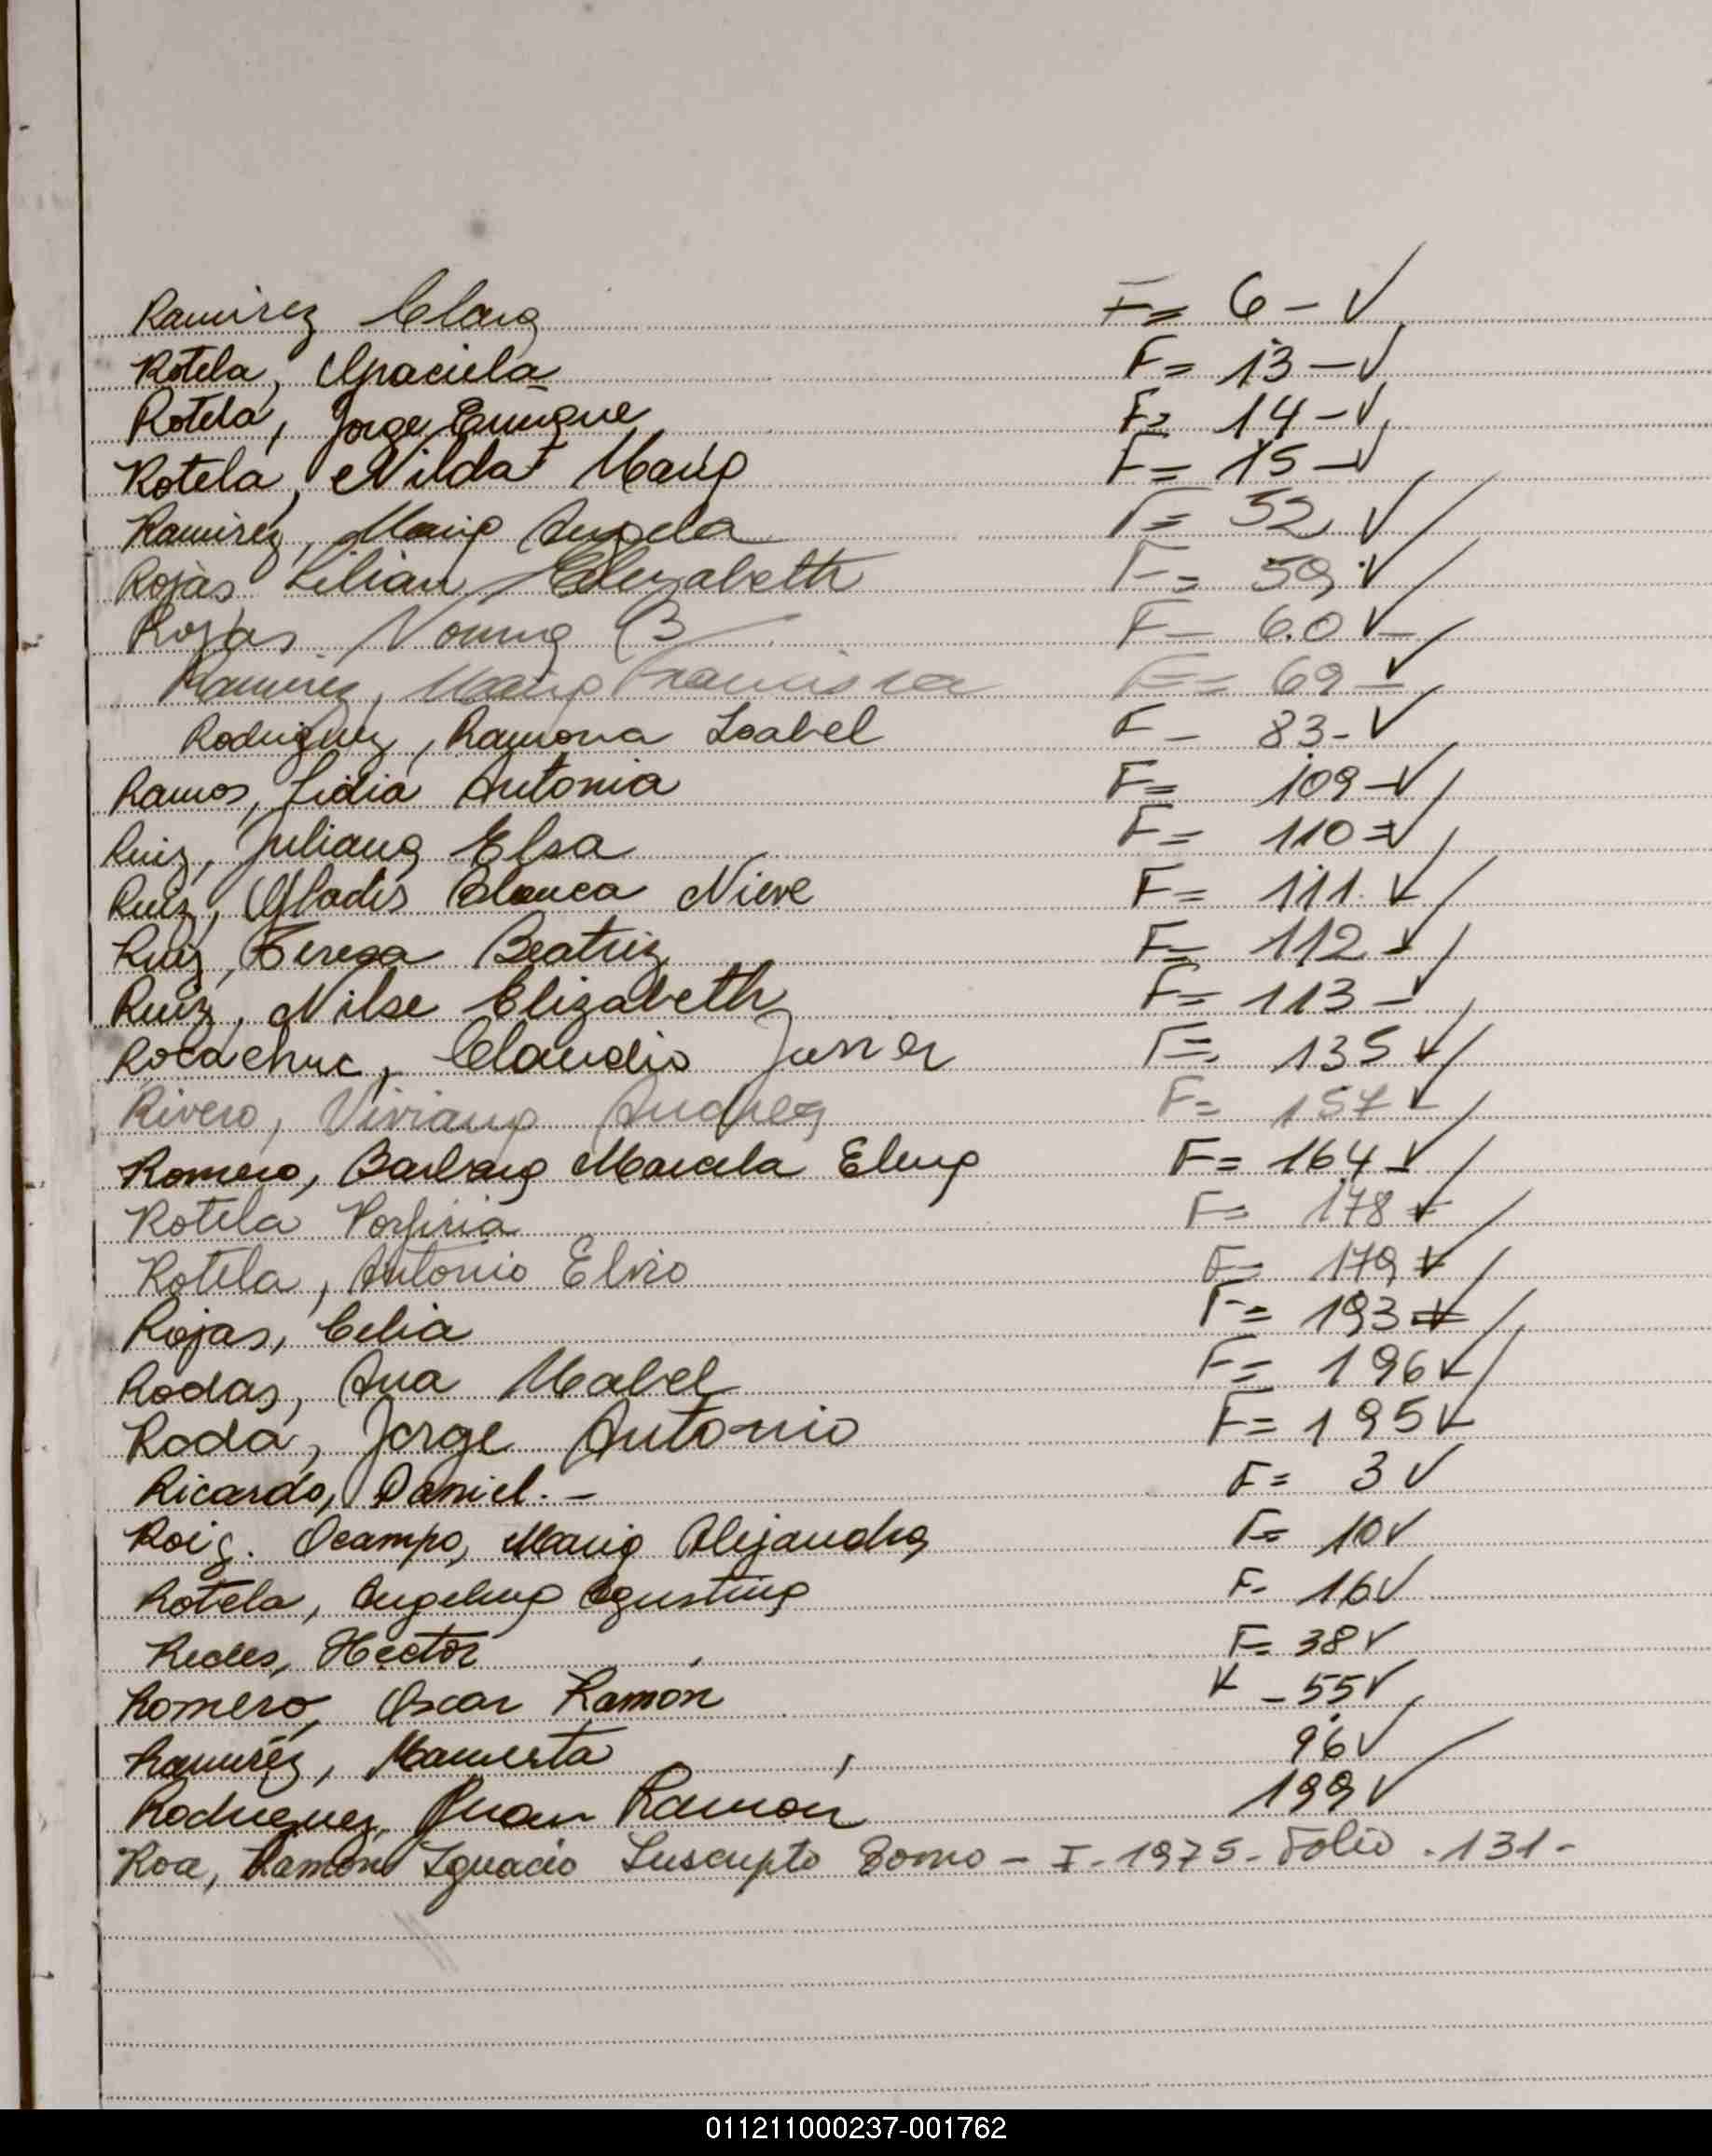 Ramirez Clara F= 6 - ✓
Rotela, Graciela F= 13 - ✓
Rotela, Jorge Enrique F= 14 - ✓
Rotela, Nilda Maria F= 15 - ✓
Ramirez, Maria Angela F= 52 ✓
Rojas Lilian Elizabeth F= 59 ✓
Rojas Norma B F= 60 ✓ -
Ramirez, Maria Francisca F= 69 - ✓
Rodriguez, Ramona Isabel F - 83 - ✓
Ramos, Lidia Antonia F= 109 - ✓
Ruiz, Juliana Elsa F= 110 = ✓
Ruiz, Gladis Blanca Nieve F= 111. ✓
Ruiz, Teresa Beatriz F= 112 - ✓
Ruiz, Nilse Elizabeth F= 113 - ✓
Claudio F= 135 ✓
Rivero, Viviana Andrea F= 157 ✓
Romero, Barbara Marcela Elena F= 164 - ✓
Rotela Porfiria F= 178 ✓
Rotela, Antonio Elvio F= 179 ✓
Rojas, Celia F= 193 ✓
Rodas, Ana Mabel F= 196 ✓
Roda, Jorge Antonio F= 195 ✓
Ricardo, Daniel. - F= 3 ✓
Roig. Ocampo, Maria Alejandra F= 10 ✓
Rotela, Angelina Agustina F- 16 ✓
Hector F= 38 ✓
Romero, Oscar Ramón - 55 ✓
Ramirez, Mamerta 96 ✓
Rodriguez, Juan Ramon 199 ✓
Roa, Ramon Ignacio Inscripto Tomo - I - 1975 - Folio . 131 -
011211000237-001762